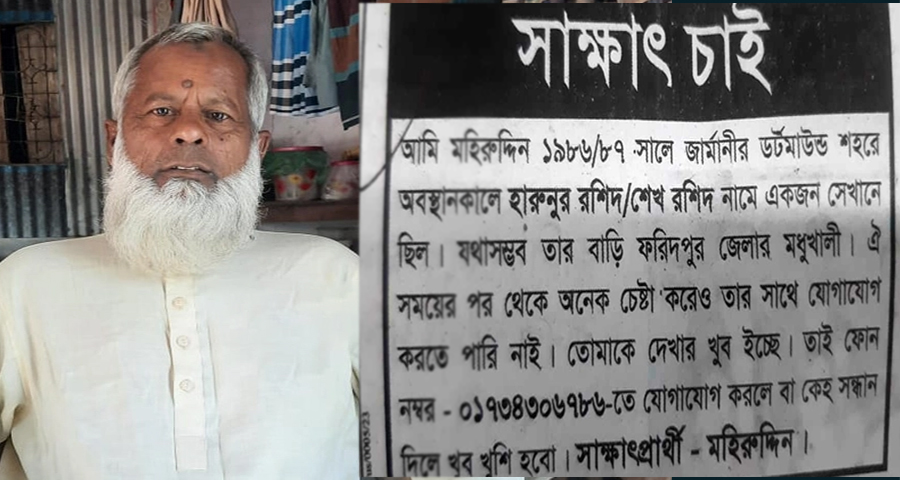 সাক্ষাৎ চাই
আমি মহিরুদ্দিন ১৯৮৬/৮৭ সালে জার্মানীর ডর্টমাউন্ড শহরে
অবস্থানকালে হারুনুর রশিদ/শেখ রশিদ নামে একজন সেখানে
ছিল। যথাসম্ভব তার বাড়ি ফরিদপুর জেলার মধুখালী। ঐ
সময়ের পর থেকে অনেক চেষ্টা করেও তার সাথে যোগাযোগ
করতে পারি নাই। তোমাকে দেখার খুব ইচ্ছে। তাই ফোন
নম্বর - ০১৭৩৪৩০৬৭৮৬-তে যোগাযোগ করলে বা কেহ সন্ধান
দিলে খুব খুশি হবো। সাক্ষাৎপ্রার্থী - মহিরুদ্দিন।